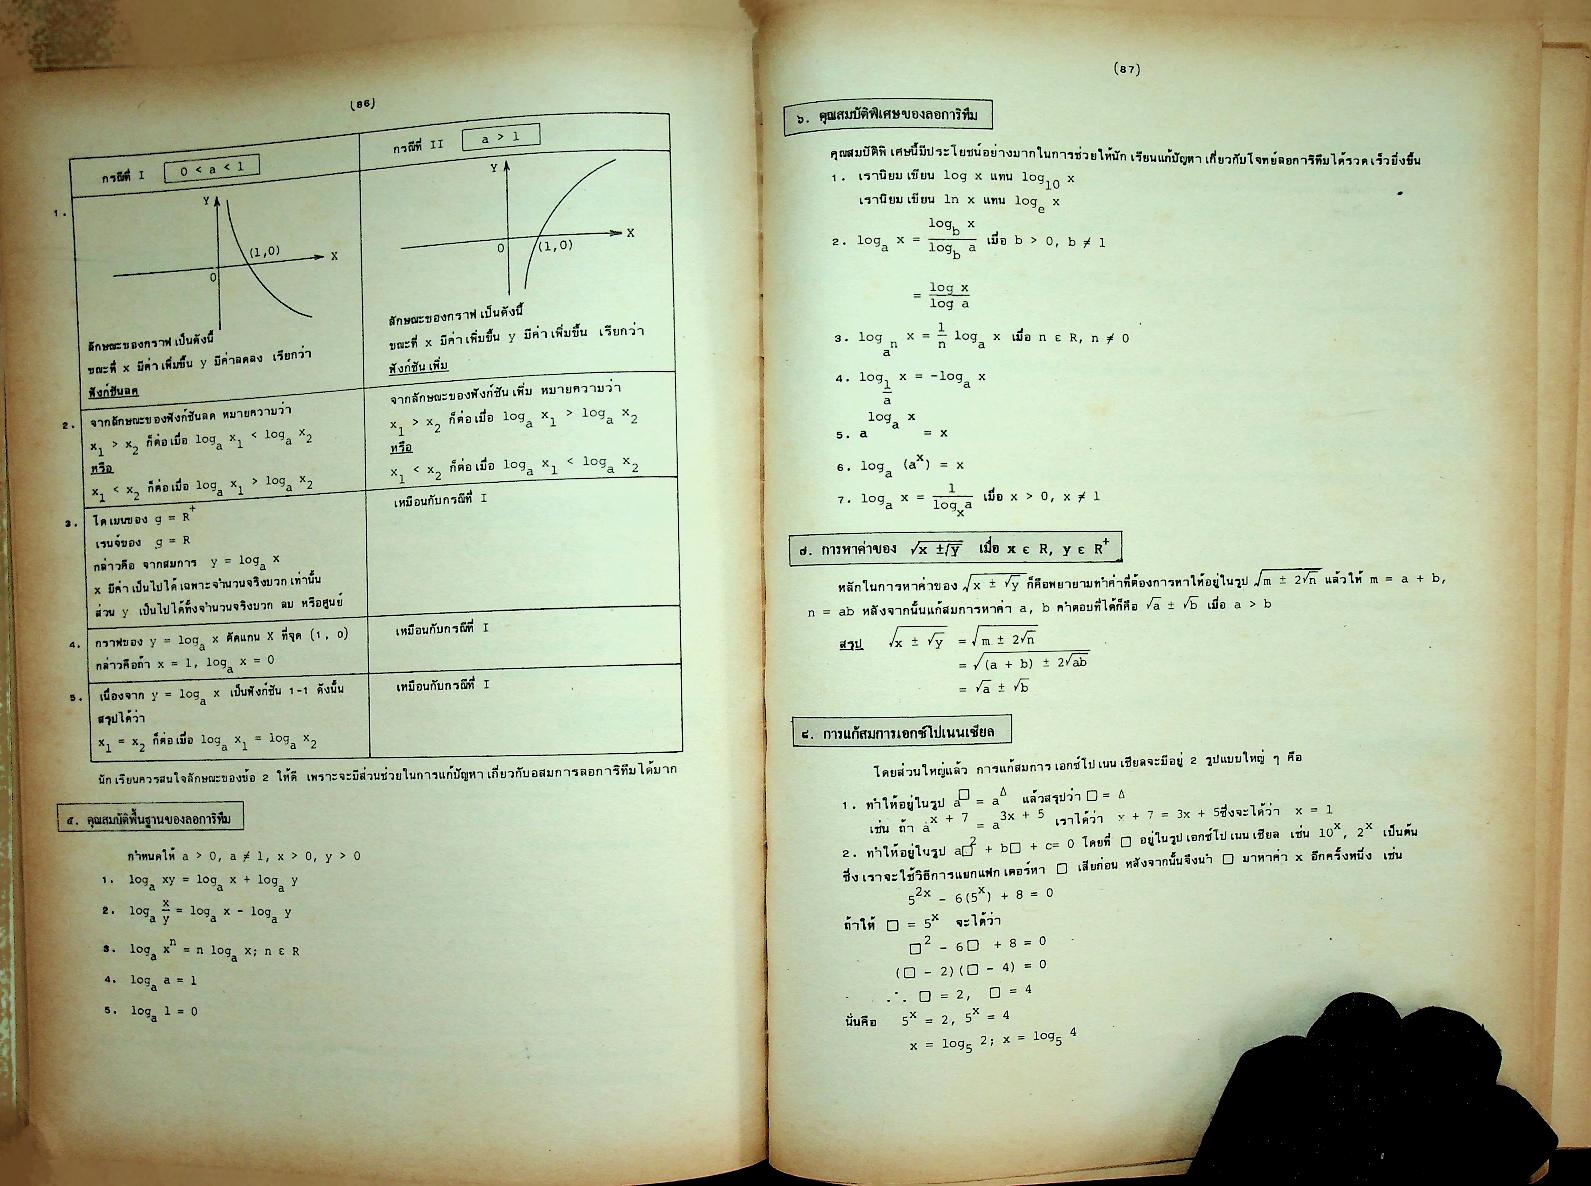 (86)
กรณีที่ I 0 < a < 1
กรณีที่ II a > 1
1.
Y
X
0
(1,0)
ลักษณะของกราฟเป็นดังนี้
ขณะที่ x มีค่าเพิ่มขึ้น y มีค่าลดลง เรียกว่า
ฟังก์ชันลด
Y
X
0
(1,0)
ลักษณะของกราฟเป็นดังนี้
ขณะที่ x มีค่าเพิ่มขึ้น y มีค่าเพิ่มขึ้น เรียกว่า
ฟังก์ชันเพิ่ม
2.
จากลักษณะของฟังก์ชันลด หมายความว่า
x₁ > x₂ ก็ต่อเมื่อ logₐ x₁ < logₐ x₂
หรือ
x₁ < x₂ ก็ต่อเมื่อ logₐ x₁ > logₐ x₂
จากลักษณะของฟังก์ชันเพิ่ม หมายความว่า
x₁ > x₂ ก็ต่อเมื่อ logₐ x₁ > logₐ x₂
หรือ
x₁ < x₂ ก็ต่อเมื่อ logₐ x₁ < logₐ x₂
3.
โดเมนของ g = R⁺
เรนจ์ของ g = R
กล่าวคือ จากสมการ y = logₐ x
x มีค่าเป็นไปได้เฉพาะจำนวนจริงบวกเท่านั้น
ส่วน y เป็นไปได้ทั้งจำนวนจริงบวก ลบ หรือศูนย์
เหมือนกับกรณีที่ I
4.
กราฟของ y = logₐ x ตัดแกน X ที่จุด (1, 0)
กล่าวคือถ้า x = 1, logₐ x = 0
เหมือนกับกรณีที่ I
5.
เนื่องจาก y = logₐ x เป็นฟังก์ชัน 1-1 ดังนั้น
สรุปได้ว่า
x₁ = x₂ ก็ต่อเมื่อ logₐ x₁ = logₐ x₂
เหมือนกับกรณีที่ I
นักเรียนควรสนใจลักษณะของข้อ 2 ให้ดี เพราะจะมีส่วนช่วยในการแก้ปัญหาเกี่ยวกับอสมการลอการิทึมได้มาก
๕. คุณสมบัติพื้นฐานของลอการิทึม
กำหนดให้ a > 0, a ≠ 1, x > 0, y > 0
1. logₐ xy = logₐ x + logₐ y
2. logₐ x/y = logₐ x - logₐ y
3. logₐ xⁿ = n logₐ x; n ε R
4. logₐ a = 1
5. logₐ 1 = 0
(87)
๖. คุณสมบัติพิเศษของลอการิทึม
คุณสมบัติพิเศษนี้มีประโยชน์อย่างมากในการช่วยให้นักเรียนแก้ปัญหาเกี่ยวกับโจทย์ลอการิทึมได้รวดเร็วยิ่งขึ้น
1. เรานิยมเขียน log x แทน log₁₀ x
เรานิยมเขียน ln x แทน logₑ x
2. logₐ x = log_b x / log_b a เมื่อ b > 0, b ≠ 1
= log x / log a
3. log_{aⁿ} x = 1/n logₐ x เมื่อ n ε R, n ≠ 0
4. log_{1/a} x = -logₐ x
5. a^{logₐ x} = x
6. logₐ (aˣ) = x
7. logₐ x = 1 / logₓ a เมื่อ x > 0, x ≠ 1
๗. การหาค่าของ √(x ± √y) เมื่อ x ε R, y ε R⁺
หลักในการหาค่าของ √(x ± √y) ก็คือพยายามทำค่าที่ต้องการหาให้อยู่ในรูป √(m ± 2√n) แล้วให้ m = a + b,
n = ab หลังจากนั้นแก้สมการหาค่า a, b คำตอบที่ได้ก็คือ √a ± √b เมื่อ a > b
สรุป √(x ± √y) = √(m ± 2√n)
= √((a + b) ± 2√ab)
= √a ± √b
๘. การแก้สมการเอกซ์โปเนนเชียล
โดยส่วนใหญ่แล้ว การแก้สมการเอกซ์โปเนนเชียลจะมีอยู่ 2 รูปแบบใหญ่ ๆ คือ
1. ทำให้อยู่ในรูป a^□ = a^Δ แล้วสรุปว่า □ = Δ
เช่น ถ้า a^{x + 7} = a^{3x + 5} เราได้ว่า x + 7 = 3x + 5 ซึ่งจะได้ว่า x = 1
2. ทำให้อยู่ในรูป a□² + b□ + c = 0 โดยที่ □ อยู่ในรูปเอกซ์โปเนนเชียล เช่น 10ˣ, 2ˣ เป็นต้น
ซึ่งเราจะใช้วิธีการแยกแฟกเตอร์หา □ เสียก่อน หลังจากนั้นจึงนำ □ มาหาค่า x อีกครั้งหนึ่ง เช่น
5²ˣ - 6(5ˣ) + 8 = 0
ถ้าให้ □ = 5ˣ จะได้ว่า
□² - 6□ + 8 = 0
(□ - 2)(□ - 4) = 0
∴ □ = 2, □ = 4
นั่นคือ 5ˣ = 2, 5ˣ = 4
x = log₅ 2; x = log₅ 4